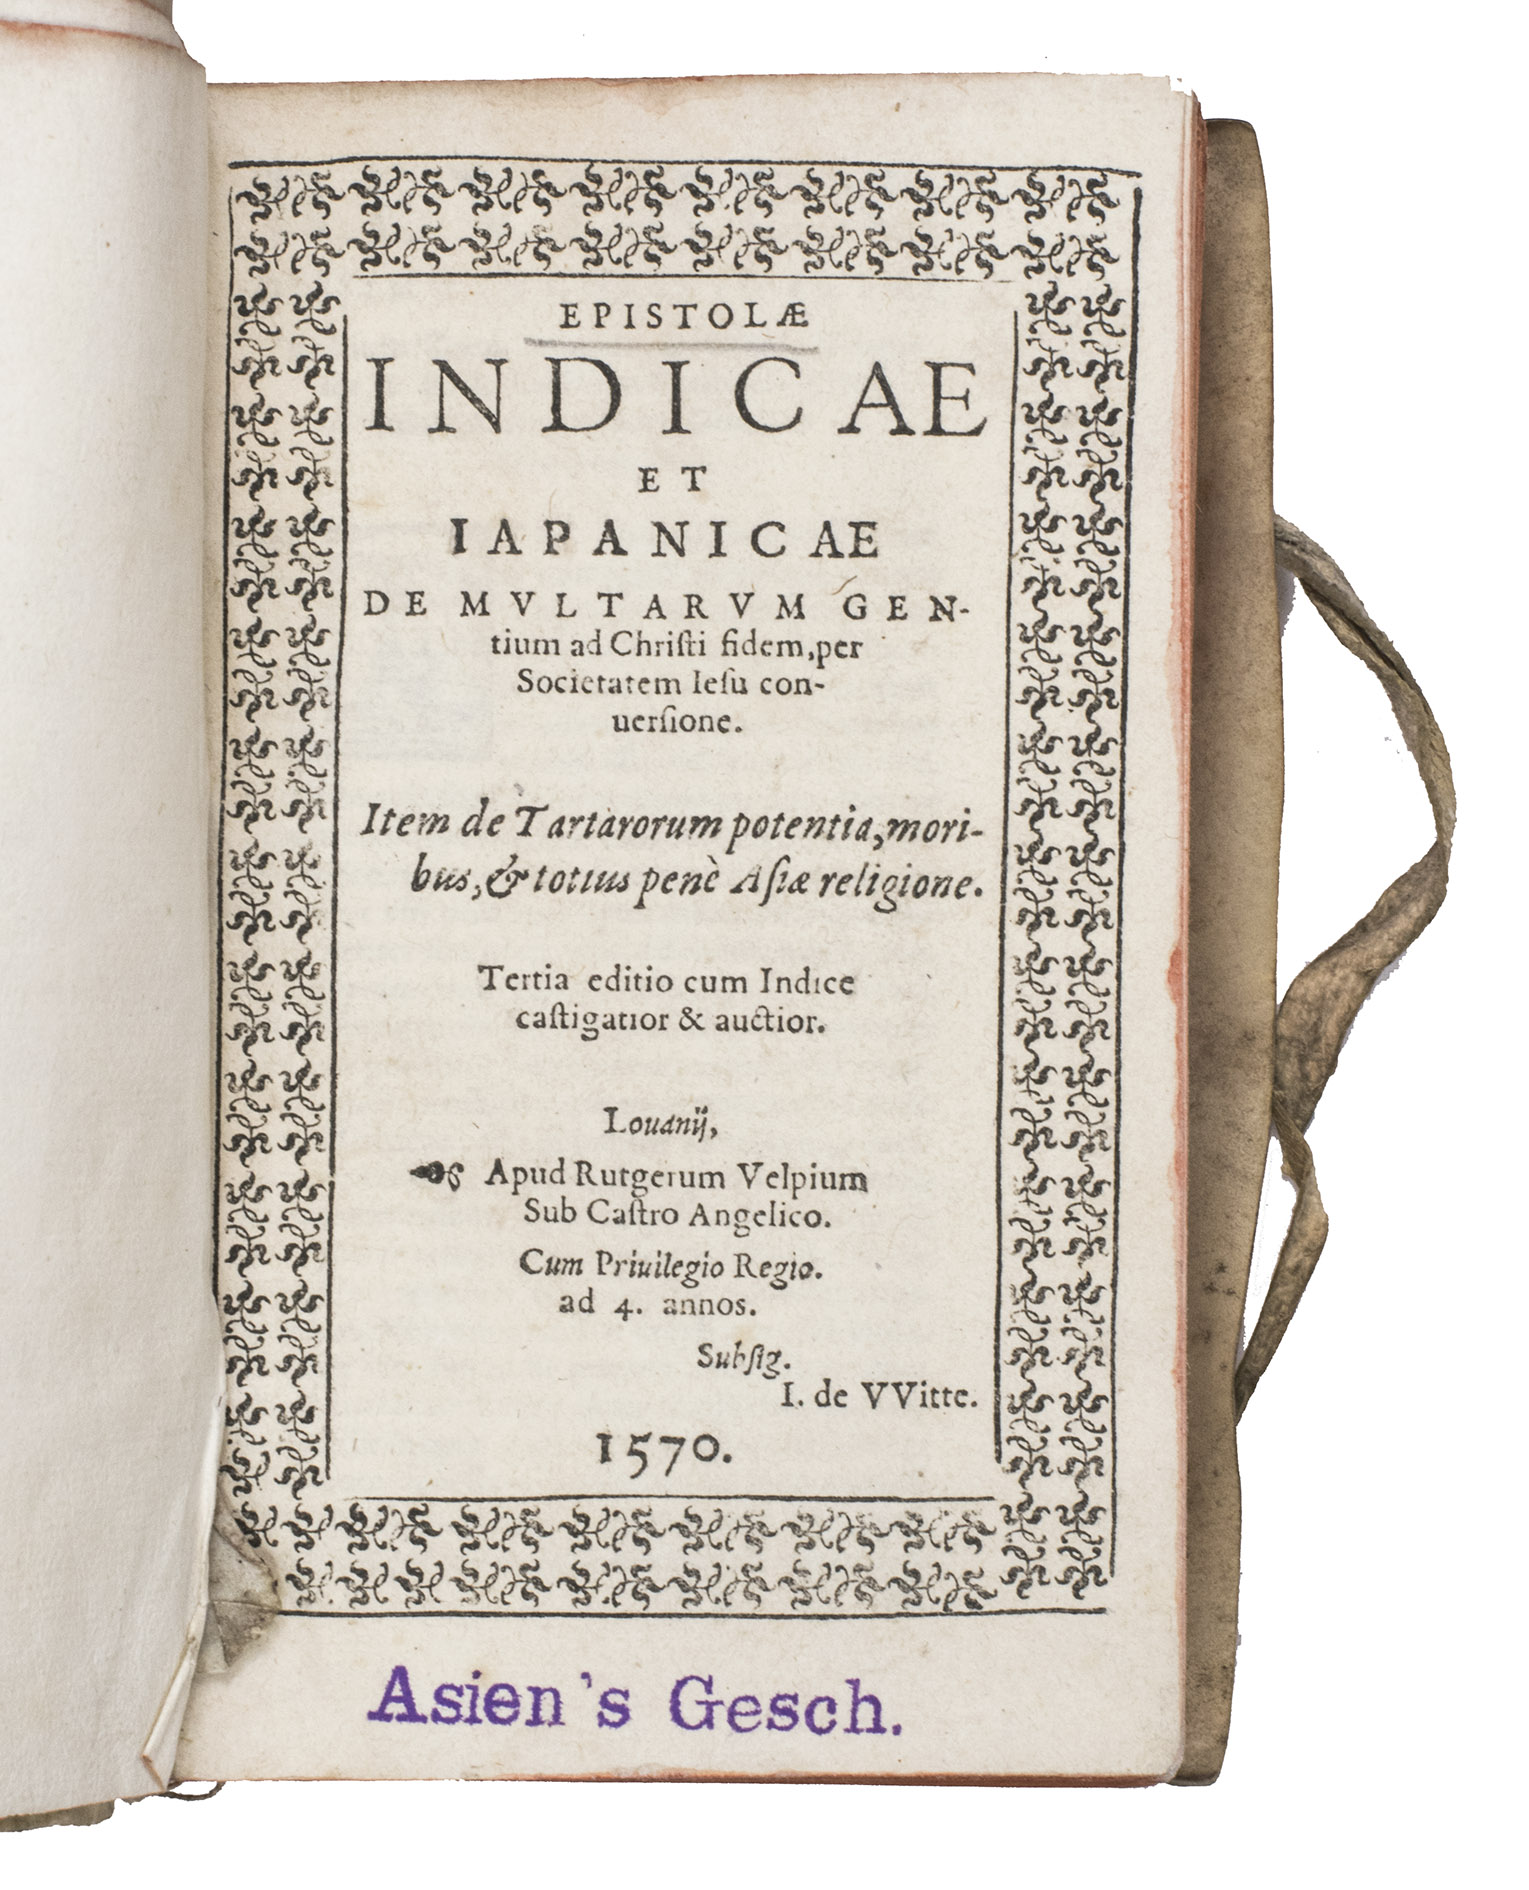 EPISTOLÆ
INDICAE
ET
IAPANICAE
DE MVLTARVM GEN-
tium ad Chriſti fidem, per
Societatem Ieſu con-
uerſione.
Item de Tartarorum potentia, mori-
bus, & totius penè Aſiæ religione.
Tertia editio cum Indice
caſtigatior & auctior.
Louanij,
Apud Rutgerum Velpium
Sub Caſtro Angelico.
Cum Priuilegio Regio.
ad 4. annos.
Subſig.
I. de VVitte.
1570.
Asien's Gesch.